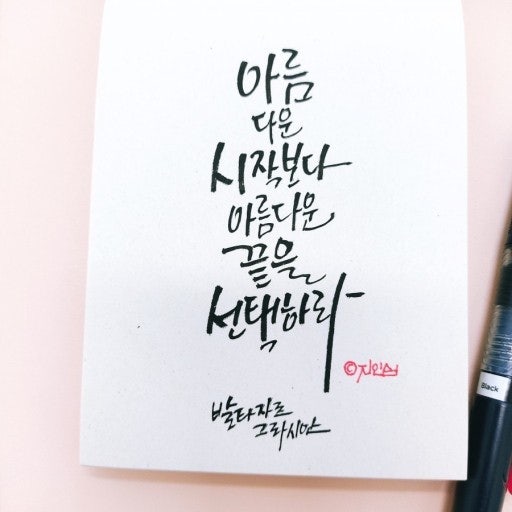 아름
다운
시작보다
아름다운
끝을
선택하라
발타자르
그라시안
Black